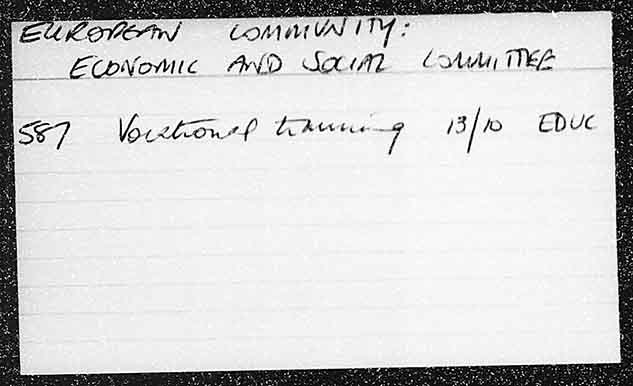 EUROPEAN COMMUNITY:
ECONOMIC AND SOCIAL COMMITTEE
587 Vocational training 13/10 EDUC